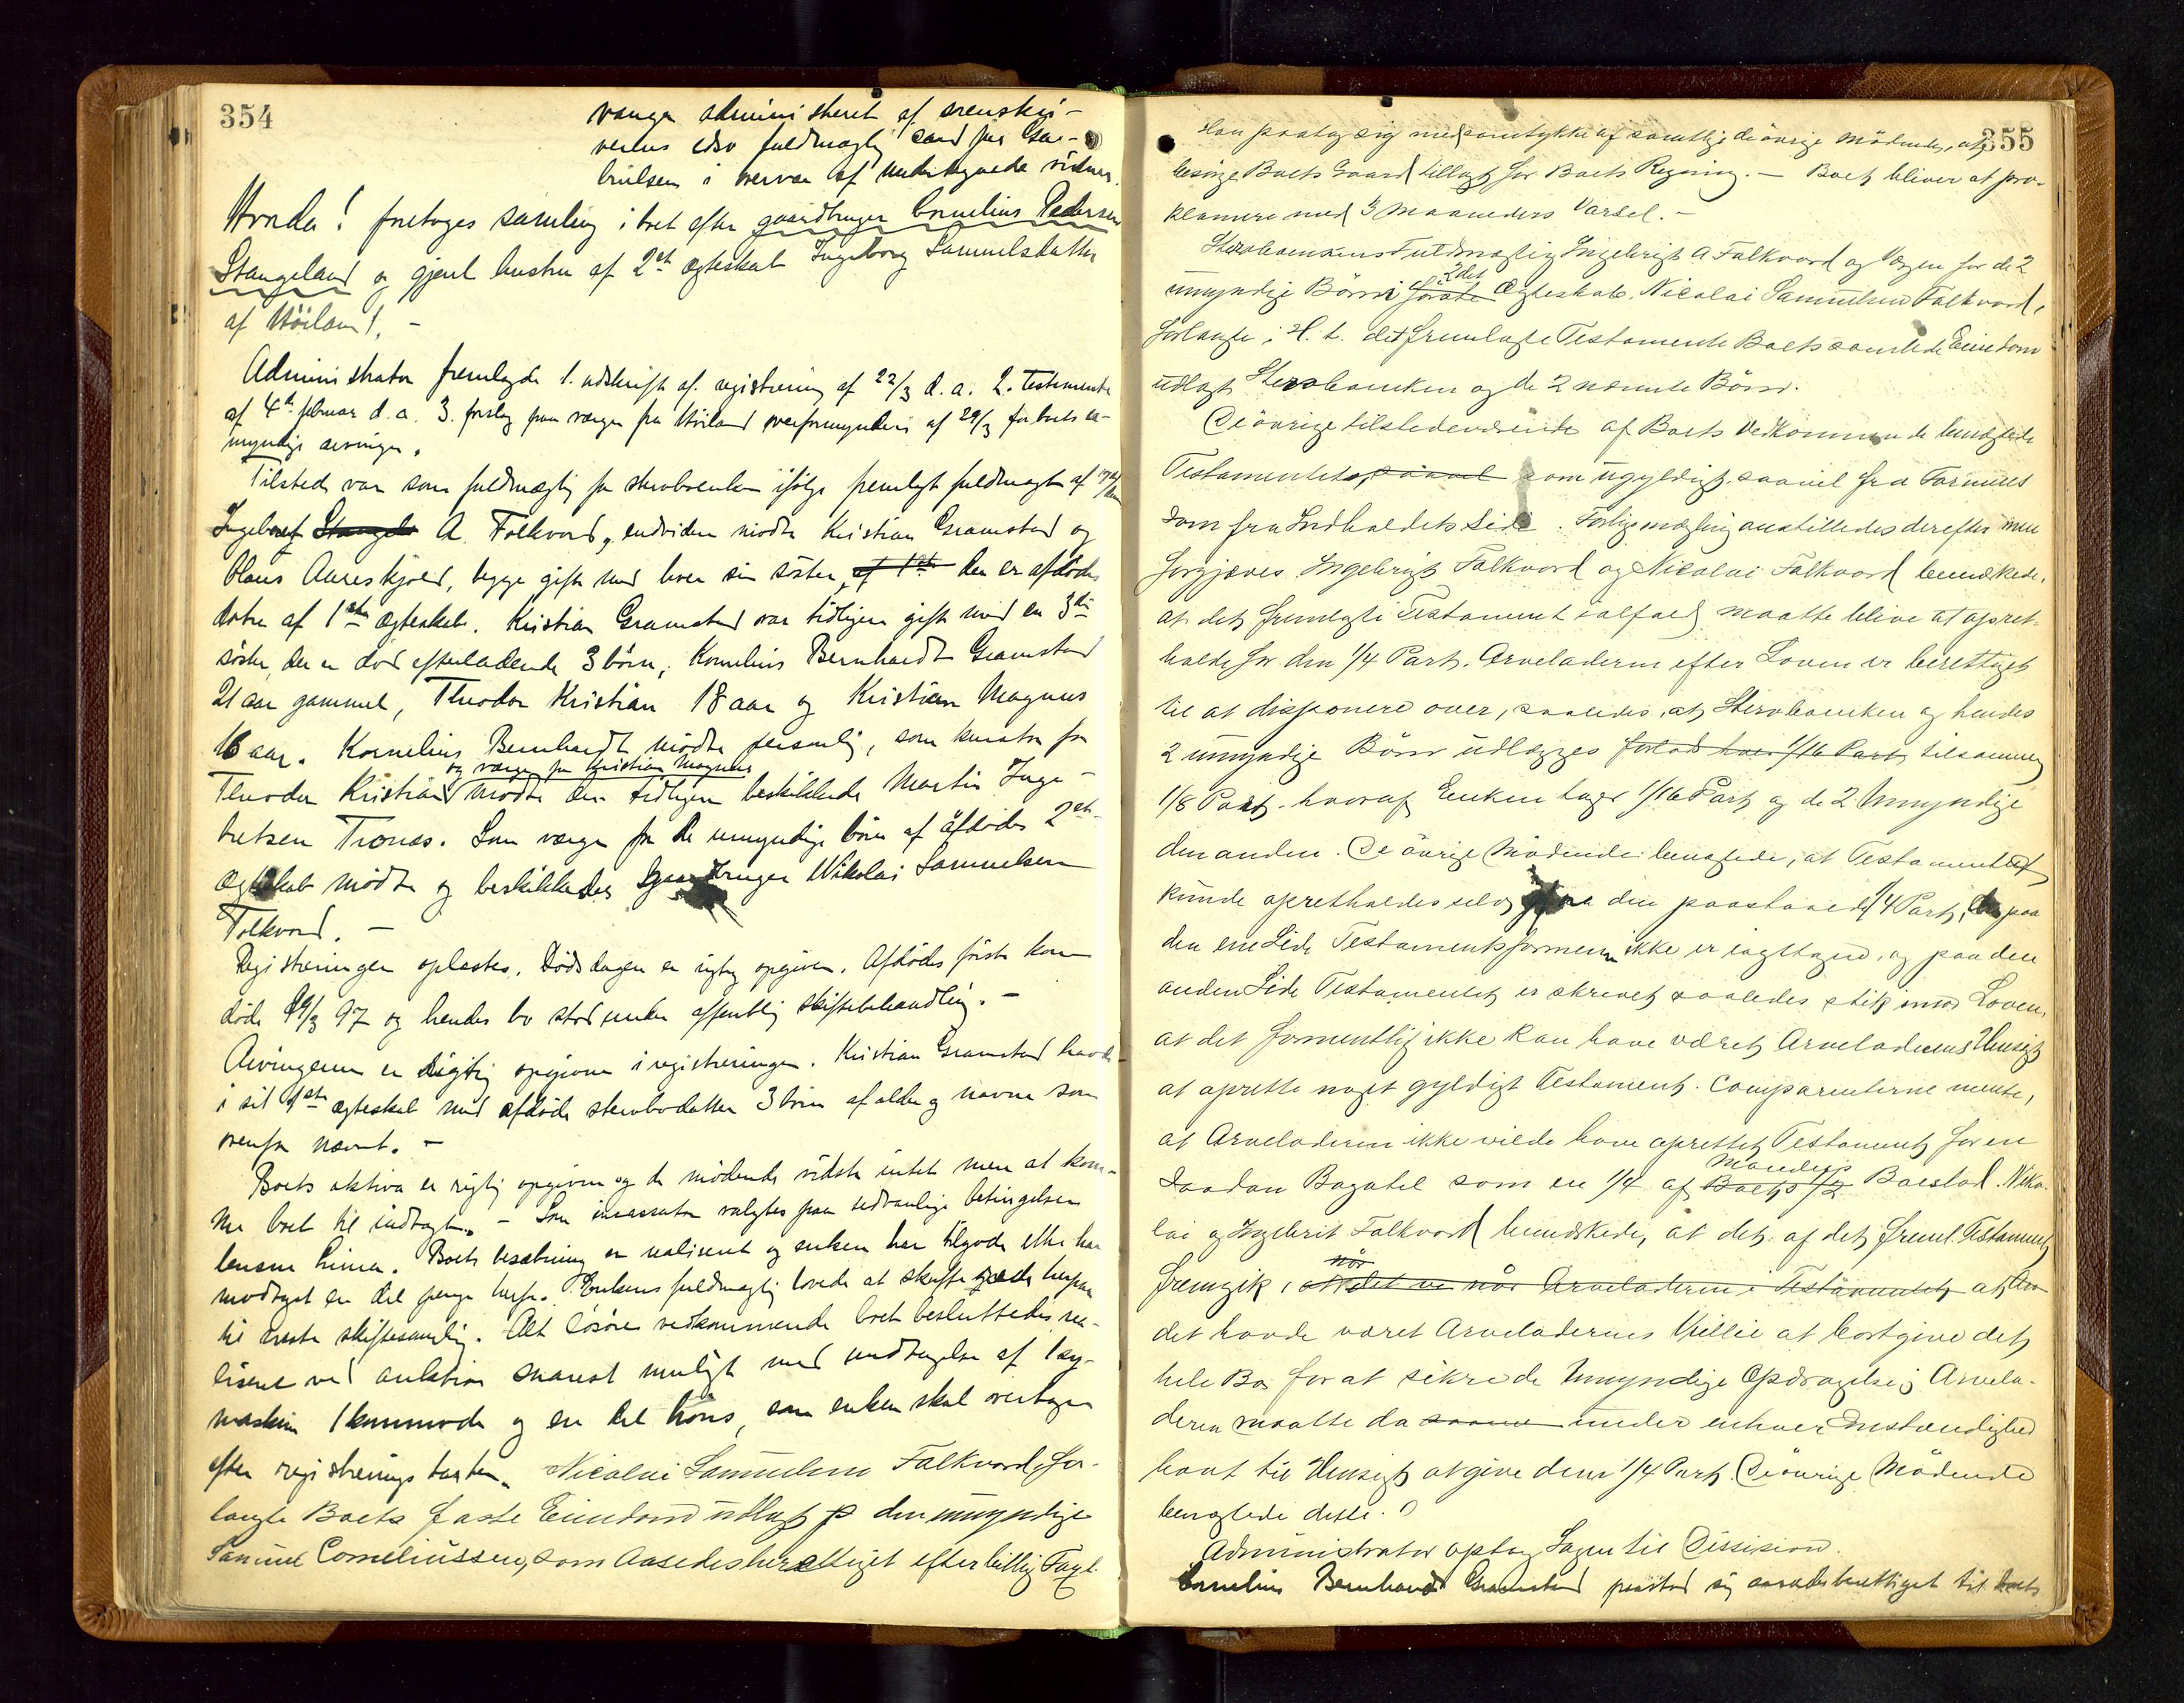 354
vanger administreret af sorenskri-
verens edsv fuldmægtig cand jur Ga-
brielsen i overvær af undertegnede vidner.
Hvorda! foretoges samling i boet efter gaardbruger Cornelius Pedersen
Stangeland og gjenl hustru af 2et ægteskab Ingeborg Samuelsdatter
af Höiland. -
Administrator fremlagde 1. udskrift af registrering af 22/3 d. a. 2. Testamente
af 4de februar d. a. 3. forslag paa værger fra Höiland overformynderi af 29/3 for boets u-
myndige arvinger.
Tilstede var som fuldmægtig for sterboenken ifölge fremlagt fuldmagt af
Ingebret Stangel A. Folkvord, endvidere mödte Kristian Gramstad og
Claus Aareskjold, begge gifte med hver sin söster, af 1ste der er afdödes
dötre af 1ste ægteskab. Kristian Gramstad var tidligere gift med en 3die
söster, der er död efterladende 3 börn, Kornelius Bernhardt Gramstad
21 aar gammel, Theodor Kristian 18 aar og Kristian Magnus
16 aar. Kornelius Bernhardt mödte personlig, som kurator for
og værge for Kristian Magnus
Theodor Kristian mödte den tidligere beskikkede Martin Inge-
bretsen Tronæs. Som værge for de umyndige börn af afdödes 2et
ægteskab mödte og beskikkedes gaardbruger Nikolai Samuelsen
Folkvord. -
Registreringen oplæstes. Dödsdagen er rigtig opgiven. Afdödes förste kone
döde 19/3 97 og hendes bo stod under offentlig skiftebehandling. -
Arvingerne er rigtig opgivne i registreringen. Kristian Gramstad havde
i sit 1ste ægteskab med afdöde sterbodatter 3 börn af alder og navne som
ovenfor nævnt. -
Boets aktiva er rigtig opgivne og de mödende vidste intet mere at kom-
me boet til indtægt. - Som incassator valgtes paa sedvanlige betingelser
lensm Hinna. Boets besætning er realiseret og enken har tilgode eller har
modtaget en del penge herfor. Enkens fuldmægtig lovede at skaffe rede herpaa
til næste skiftesamling. Alt lösöre vedkommende boet besluttedes rea-
liseret ved auktion snarest muligt med undtagelse af 1 sy-
maskin 1 kommode og en del höns, som enken skal overtage
efter registreringstaxten. Nicolai Samuelsen Folkvord for-
langte Boets faste Eiendom udlagt p den umyndige
Samuel Corneliussen, som Aasædesberettiget efter billig Taxt.
355
Han paatog sig med samtykke af samtlige de övrige Mödende, at
besörge Boets Gaard tillagt for Boets Regning. - Boet bliver at pro-
klamere med 3 Maaneders Varsel. -
Sterboenkens Fuldmægtig Ingebrigt A Folkvord og Vergen for de 2
2det
umyndige Börn i förste Ægteskab, Nicolai Samuelsen Folkvord,
forlangte i H. t. det fremlagte Testamente Boets samlede Eiendom
udlagt Sterboenken og de 2 nævnte Börn.
De övrige tilstedeværende af Boets Vedkommende benægtede
Testamentets, saavel som ugyldigt saavel fra Formens
som fra Indholdets Side. Forligsmægling anstilledes derefter men
forgjæves. Ingebrigt Folkvord og Nicolai Folkvord bemærkede,
at det fremlagte Testament ialfald maatte blive at opret-
holde for den 1/4 Part. Arveladeren efter Loven er berettiget
til at disponere over, saaledes, at Sterboenken og hendes
2 umyndige Börn udlægges forlod hver 1/16 Part, tilsammen
1/8 Part. hvoraf Enken tager 1/16 Part og de 2 Umyndige
den anden. De övrige Mödende benægtede, at Testamentet
kunde opretholdes selv for den paastaaede 1/4 Part, da paa
den ene Side Testamentsformerne ikke er iagttagne, og paa den
anden Side Testamentet er skrevet saaledes stik imod Loven,
at det formentlig ikke kan have været Arveladerens Hensigt
at oprette noget gyldigt Testament. Comparenterne mente,
at Arveladeren ikke vilde have oprettet Testament for en
Mandens
saadan Bagatel som en 1/4 af Boets 1/2 Boeslod. Niko-
lai og Ingebrit Folkvord bemærkede, at det af det freml. Testament
når
fremgik, at Arveladeren i Testamentet at
det havde været Arveladerens Villie at bortgive det
hele Bo for at sikre de Umyndige Opdragelse; Arvela-
deren maatte da saavel under enhver Omstændighed
havt til Hensigt at give dem 1/4 Part. De övrige Mödende
benægtede dette.
Administrator optog Sagen til Decision.
Cornelius Bernhardt Gramstad paastod sig aasædesberettiget til boets